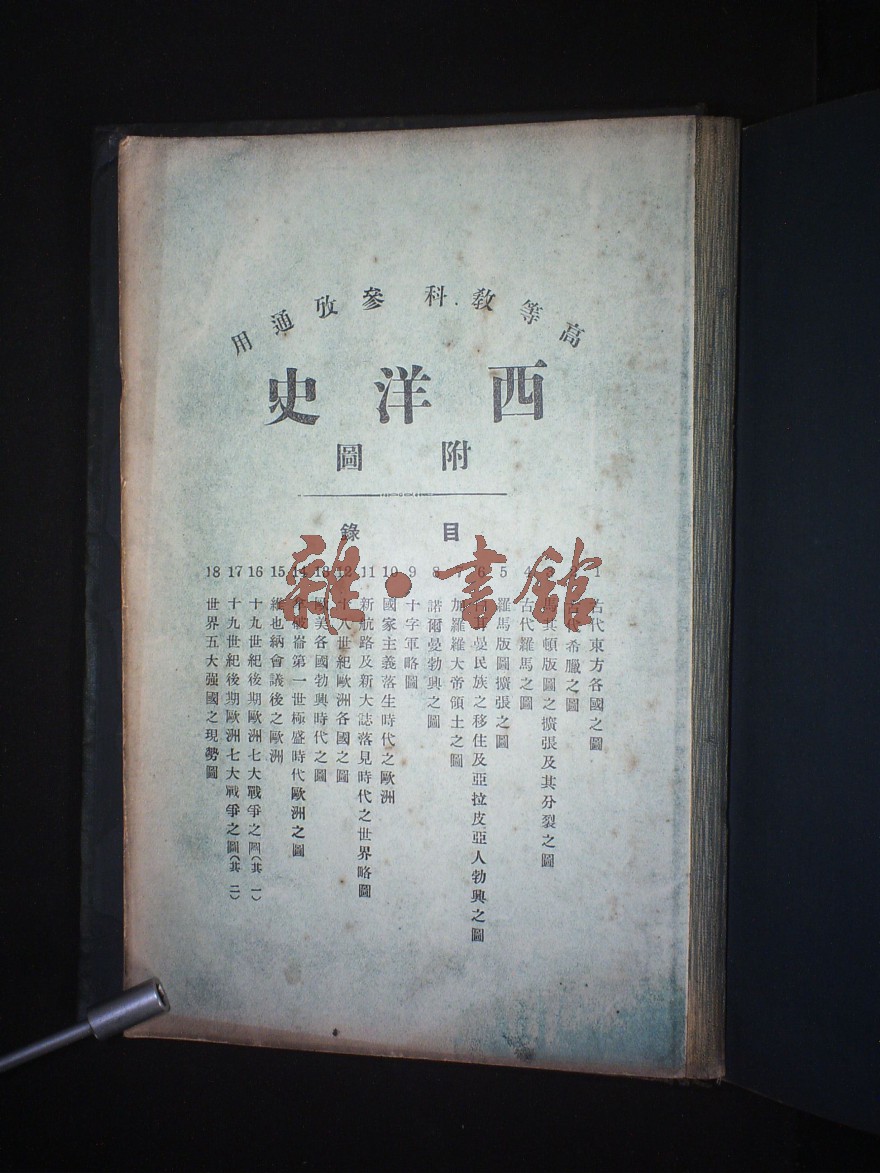 高等教科參攷通用
西洋史
附圖
目錄
1 古代東方各國之圖
2 古代希臘之圖
3 馬其頓版圖之擴張及其分裂之圖
4 古代羅馬之圖
5 羅馬版圖擴張之圖
6 日耳曼民族之移住及亞拉皮亞人勃興之圖
7 加羅羅大帝領土之圖
8 諾爾曼勃興之圖
9 十字軍略圖
10 國家主義落生時代之歐洲
11 新航路及新大誌落見時代之世界略圖
12 十八世紀歐洲各國之圖
13 歐美各國勃興時代之圖
14 拿破崙第一世極盛時代歐洲之圖
15 維也納會議後之歐洲
16 十九世紀後期歐洲七大戰爭之圖(其一)
17 十九世紀後期歐洲七大戰爭之圖(其二)
18 世界五大强國之現勢圖
雜·書館